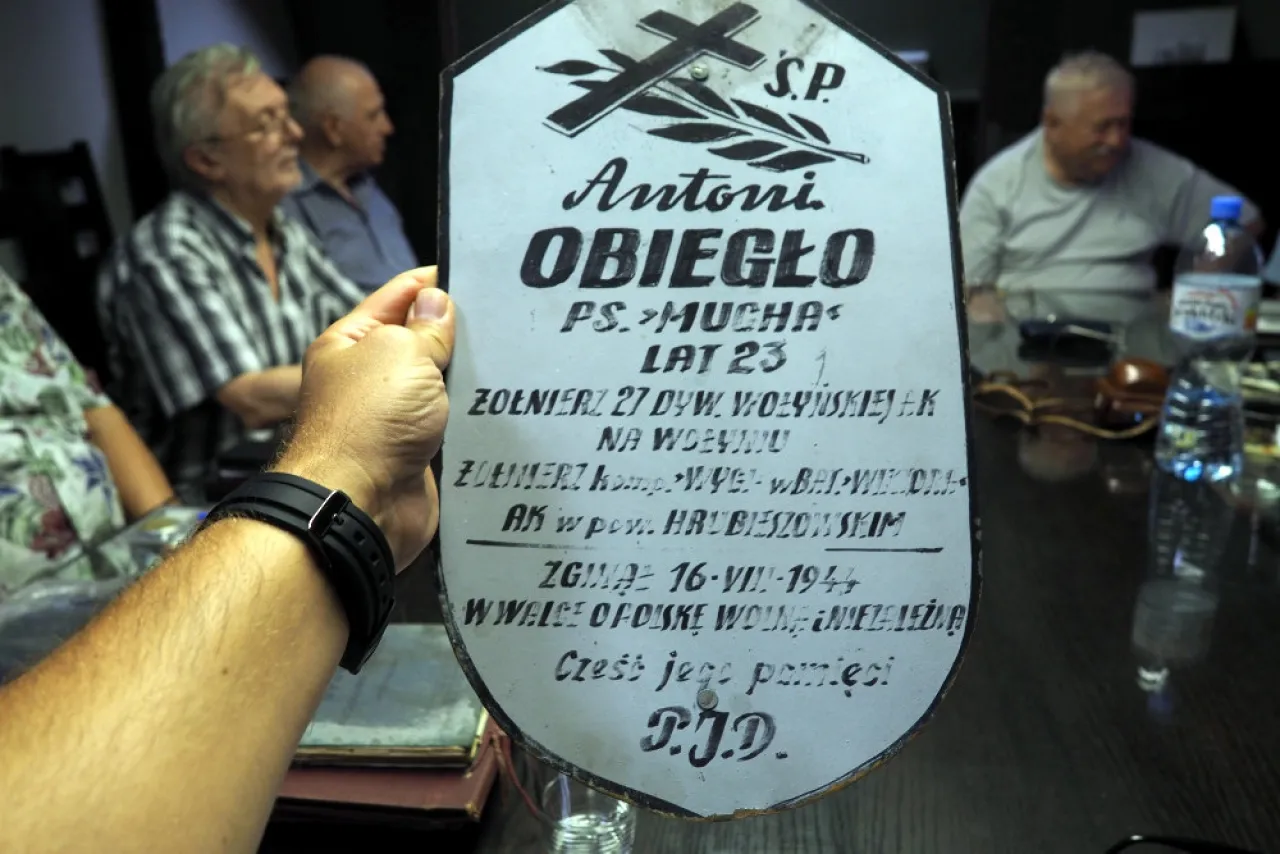 Ś.P.
Antoni
OBIEGŁO
PS. »MUCHA«
LAT 23
ŻOŁNIERZ 27 DYW. WOŁYŃSKIEJ AK
NA WOŁYNIU
ŻOŁNIERZ komp. w BAT.
AK w pow. HRUBIESZOWSKIM
ZGINĄŁ 16-VIII-1944
W WALCE O POLSKĘ WOLNĄ i NIEZALEŻNĄ
Cześć jego pamięci
P.J.D.